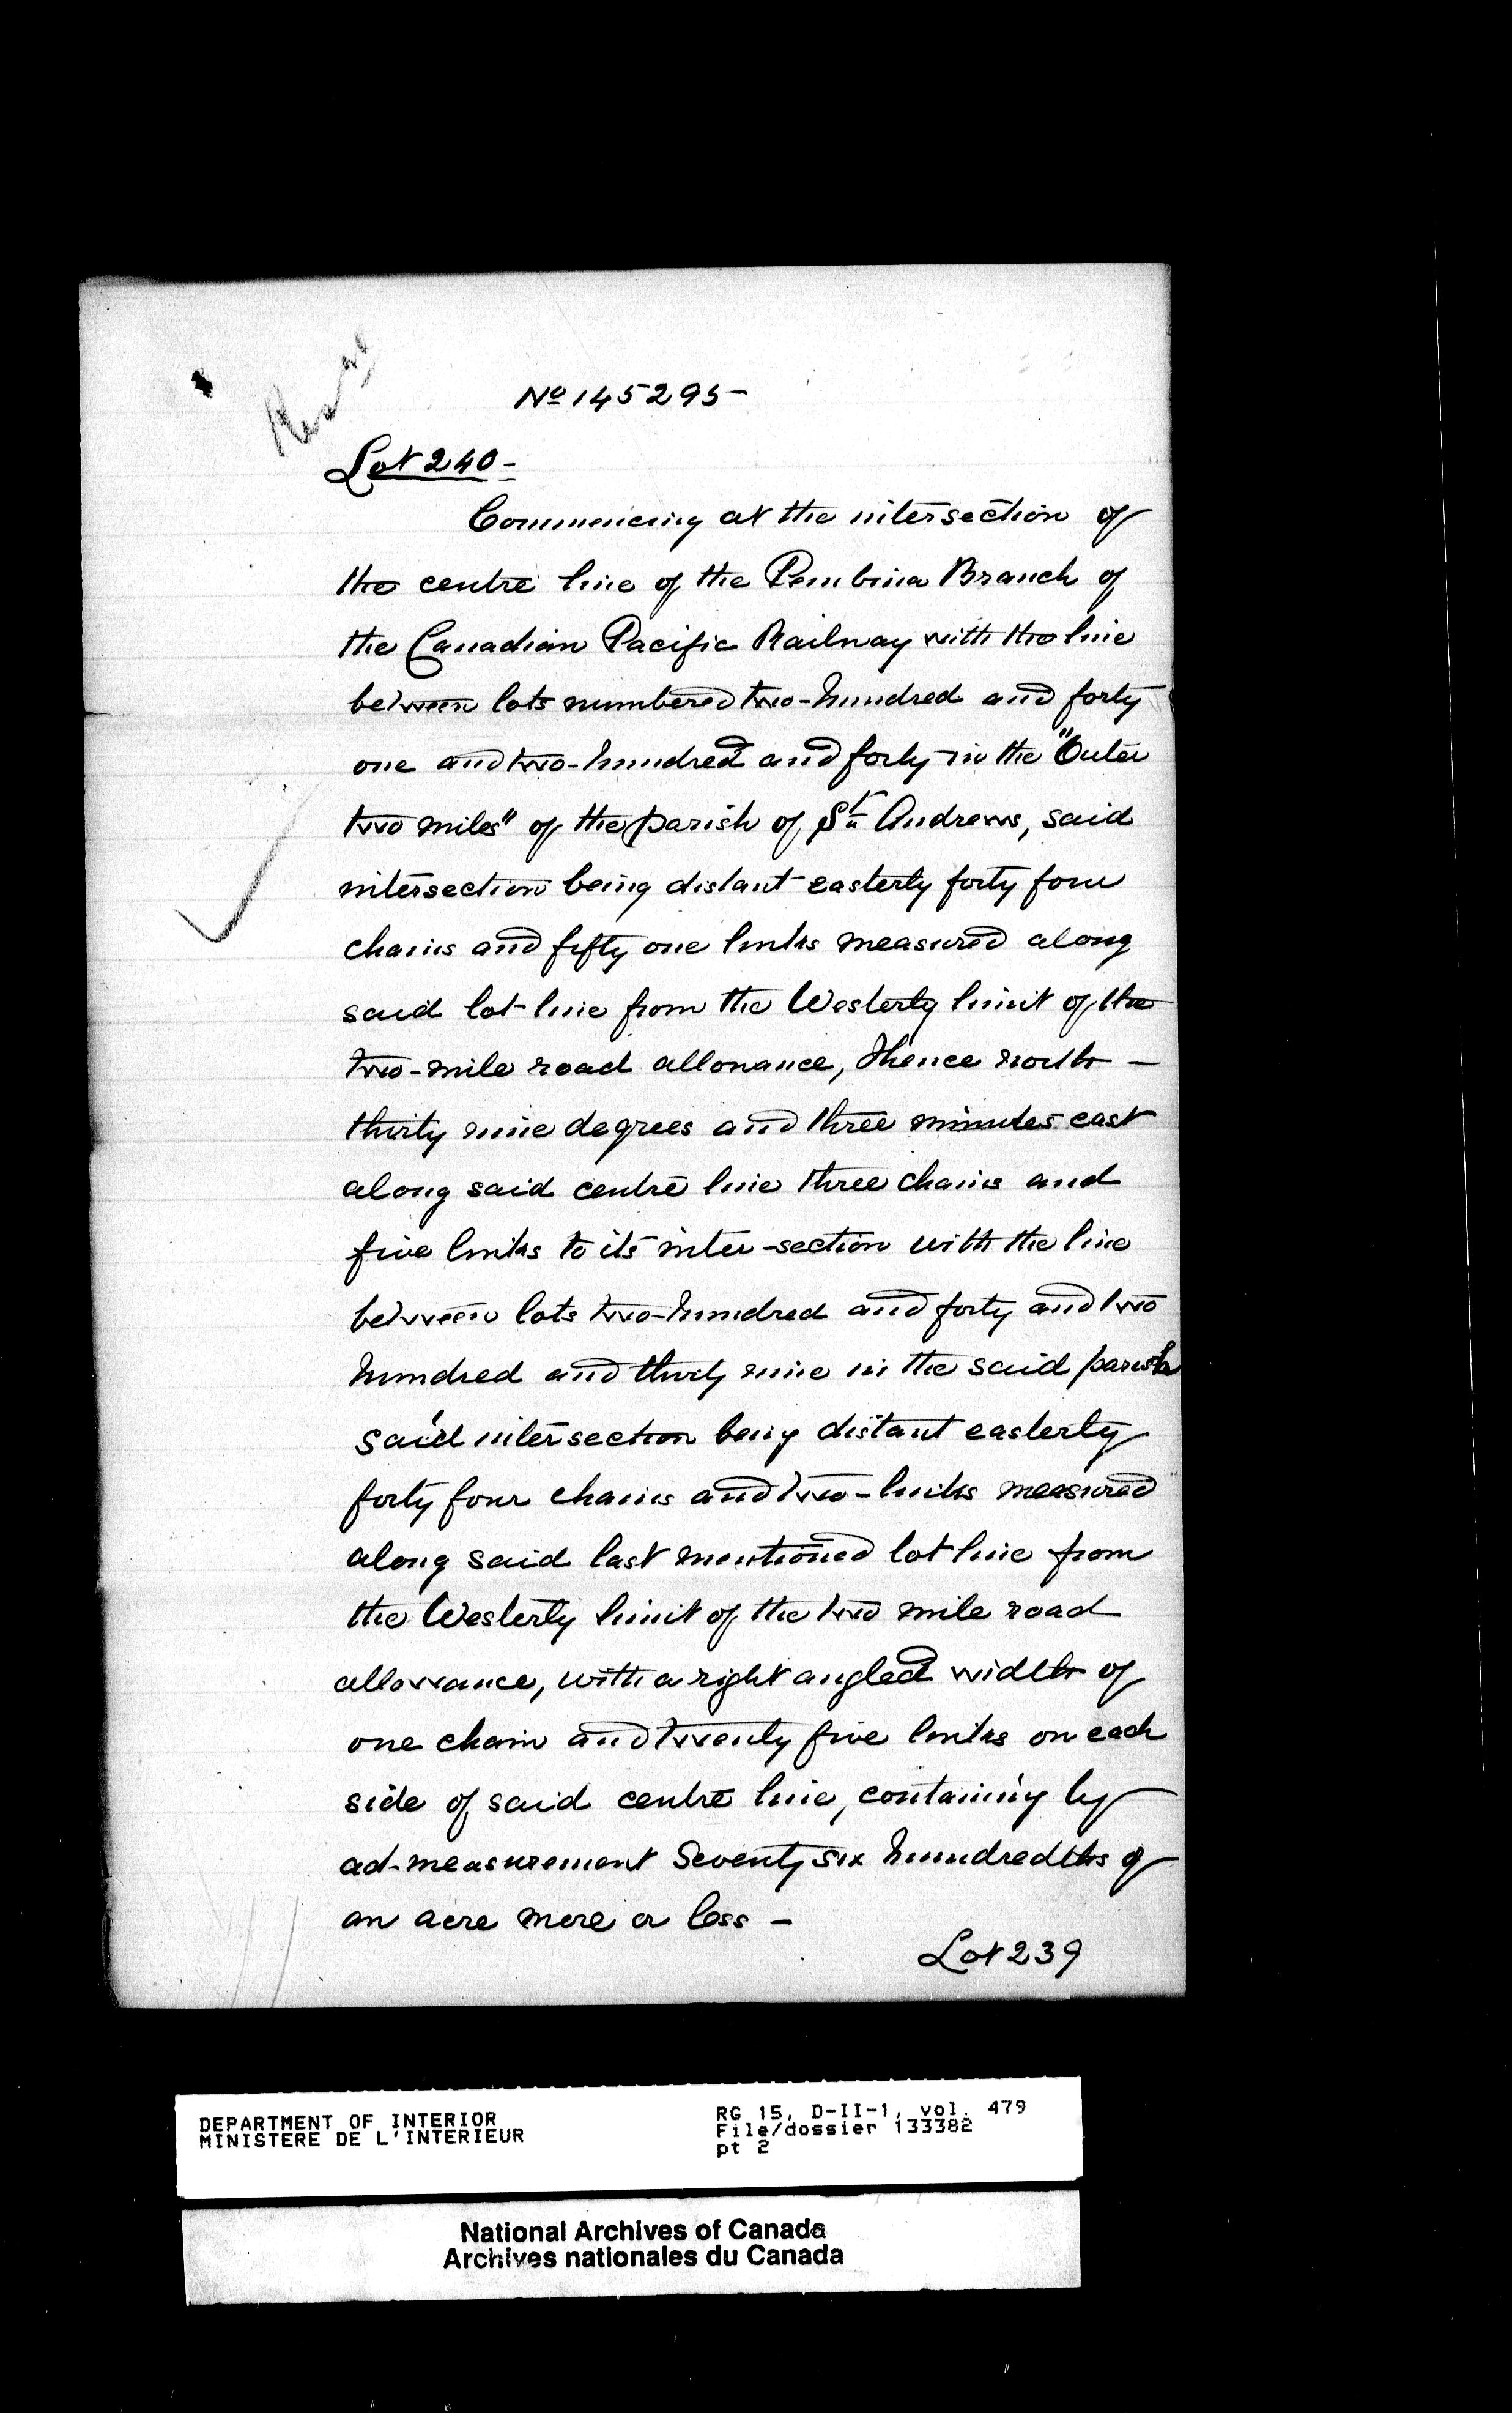 No 145295-
Lot 240-
Commencing at the intersection of
the centre line of the Pembina Branch of
the Canadian Pacific Railway with the line
between lots numbered two-hundred and forty
one and two-hundred and forty in the "Outer
two miles" of the parish of St Andrews, said
intersection being distant easterly forty four
chains and fifty one links measured along
said lot-line from the Westerly limit of the
two-mile road allowance, thence north -
thirty nine degrees and three minutes east
along said centre line three chains and
five links to its inter-section with the line
between lots two-hundred and forty and two
hundred and thirty nine in the said parish
said intersection being distant easterly
forty four chains and two-links measured
along said last mentioned lot line from
the Westerly limit of the two mile road
allowance, with a right angled width of
one chain and twenty five links on each
side of said centre line, containing by
ad-measurement Seventy six hundredths of
an acre more or less -
Lot 239
DEPARTMENT OF INTERIOR
MINISTERE DE L'INTERIEUR
RG 15, D-II-1, vol. 479
File/dossier 133382
pt 2
National Archives of Canada
Archives nationales du Canada